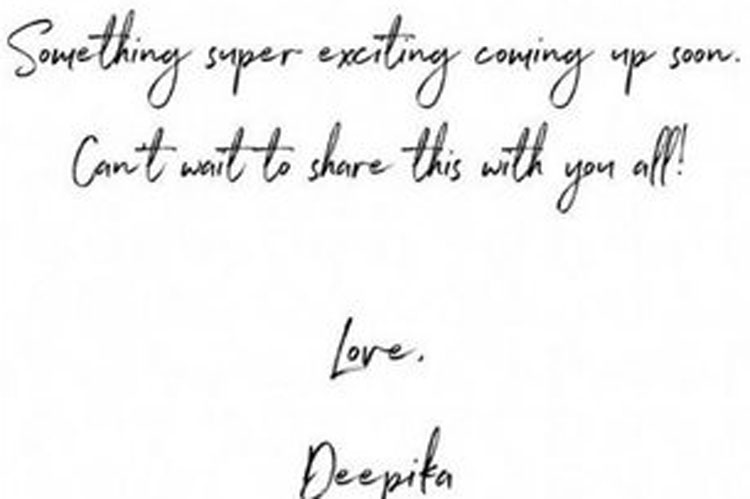 Something super exciting coming up soon.
Can't wait to share this with you all!
Love,
Deepika